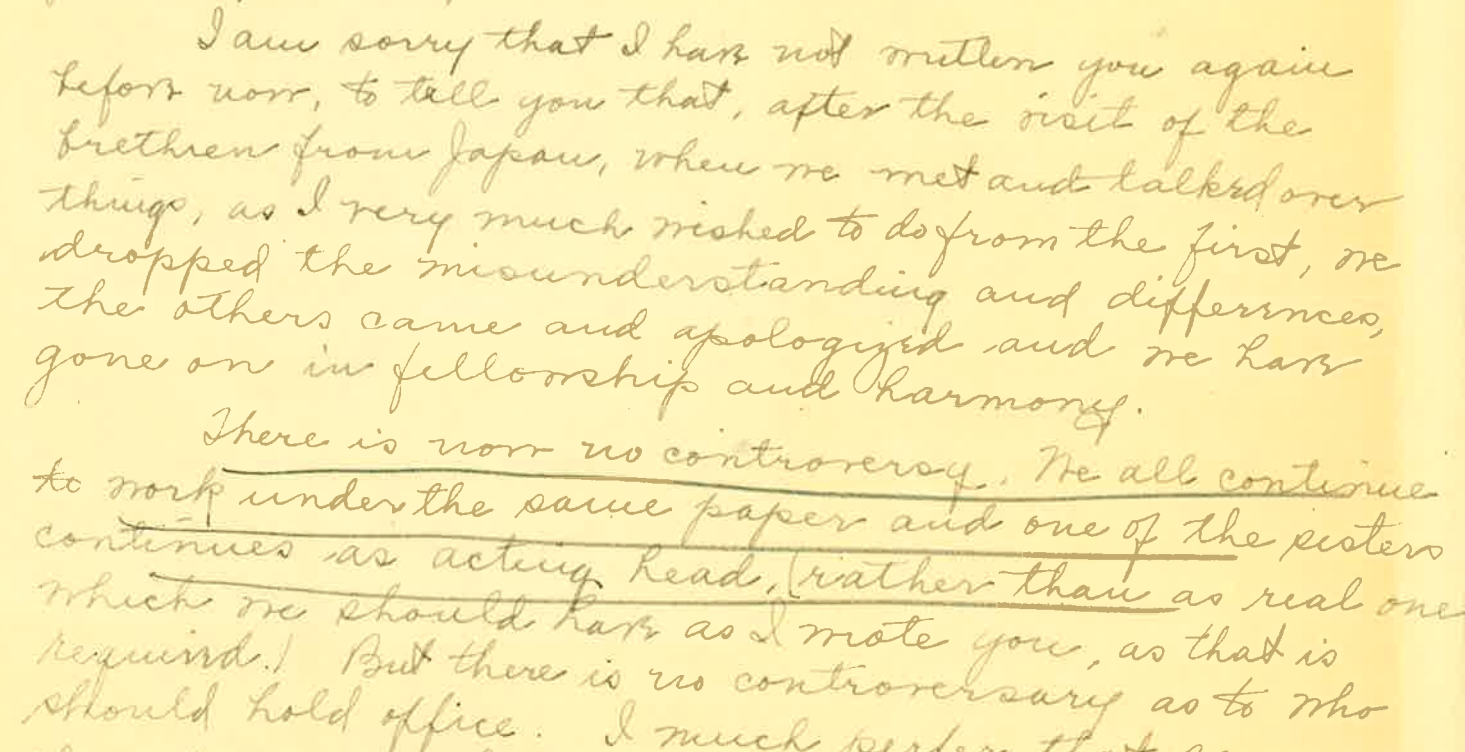 I am sorry that I have not written you again
before now, to tell you that, after the visit of the
brethren from Japan, when we met and talked over
things, as I very much wished to do from the first, we
dropped the misunderstanding and differences,
the others came and apologized and we have
gone on in fellowship and harmony.
There is now no controversy. We all continue
to work under the same paper and one of the sisters
continues as acting head, (rather than as real one
which we should have as I wrote you, as that is
required.) But there is no controversary as to who
should hold office. I much perfer that